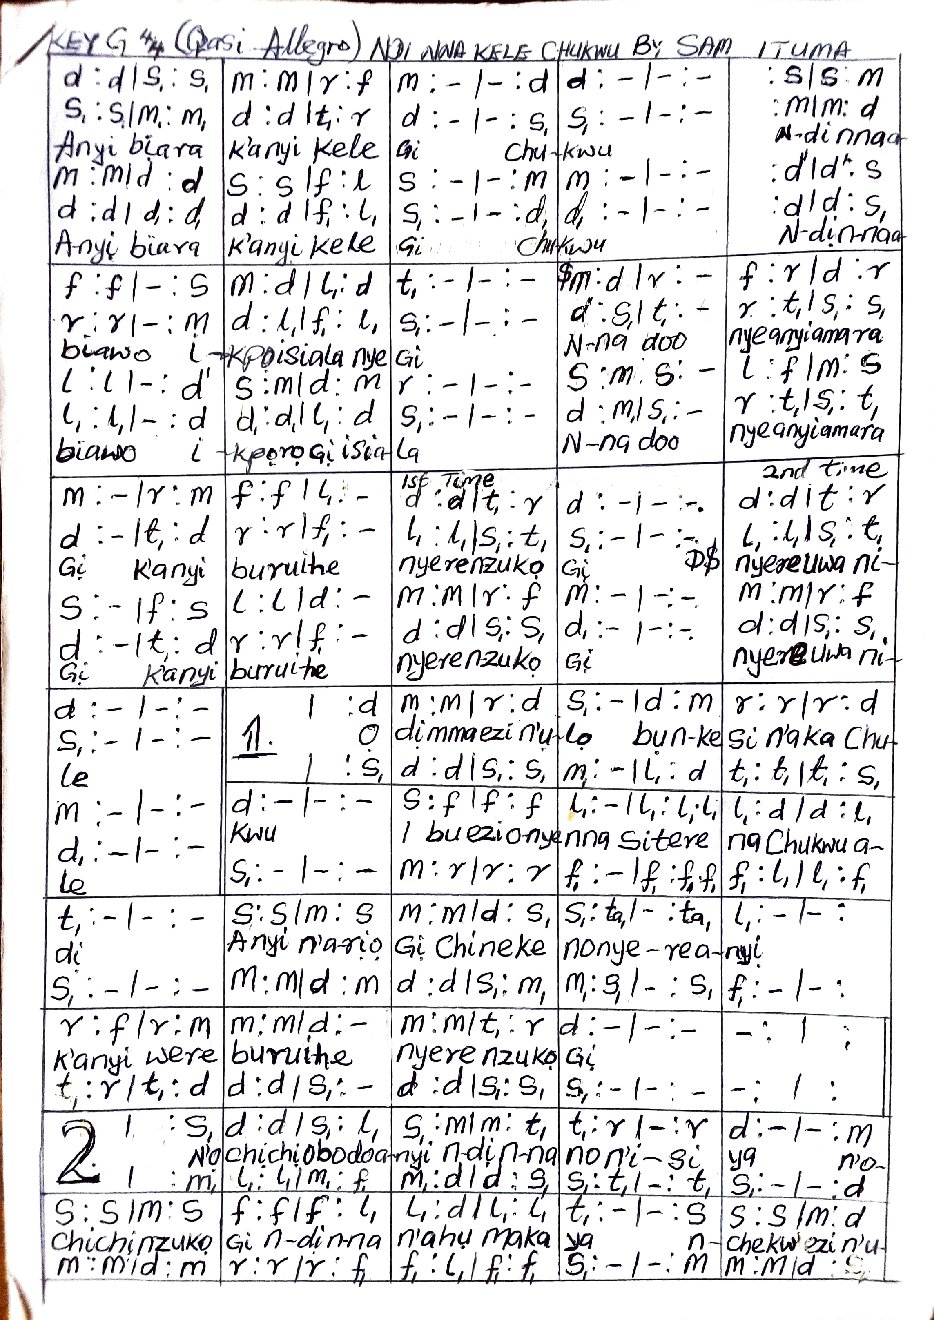 KEY G 4/4 (Qasi Allegro) NDI NNA KELE CHUKWU BY SAM ITUMA
d : d | s, : s, m : m | r : f m : - | - : d d : - | - : - : s | s : m
s, : s, | m, : m, d : d | t, : r d : - | - : s, s, : - | - : - : m | m : d
Anyi bịara k'anyi kele Gi Chu-kwu N-di nnaa
m : m | d : d s : s | f : l s : - | - : m m : - | - : - : d' | d' : s
d : d | d, : d, d : d | f, : l, s, : - | - : d, d, : - | - : - : d | d : s,
Anyị bịara k'anyi kele Gi Chukwu N-dịn-naa
f : f | - : s m : d | l, : d t, : - | - : - $ m : d | r : - f : r | d : r
r : r | - : m d : l, | f, : l, s, : - | - : - d : s, | t, : - r : t, | s, : s,
biawo i - kpoisiala nye Gi N-na doo nyeanyiamara
l : l | - : d' s : m | d : m r : - | - : - s : m s : - l : f | m : s
l, : l, | - : d d, : d, | l, : d s, : - | - : - d : m, | s, : - r : t, | s, : t,
biawo i - kpọrọ Gị isia La N-na doo nyeanyiamara
1st Time 2nd time
m : - | r : m f : f | l, : - d : d | t, : r d : - | - : -. d : d | t : r
d : - | t, : d r : r | f, : - l, : l, | s, : t, s, : - | - : -. l, : l, | s, : t,
Gị k'anyi buruihe nyerenzukọ Gị D$ nyereuwa ni-
s : - | f : s l : l | d : - m : m | r : f m : - | - : - m : m | r : f
d : - | t, : d r : r | f, : - d : d | s, : s, d, : - | - : -. d : d | s, : s,
Gị k'anyi buruihe nyerenzukọ Gị nyereuwa ni-
d : - | - : - | : d m : m | r : d s, : - | d : m r : r | r : d
s, : - | - : - 1. O dimmaezi n'u-lọ bụn-ke si n'aka Chu-
le | : s, d : d | s, : s, m, : - | l, : d t, : t, | t, : s,
m : - | - : - d : - | - : - s : f | f : f l, : - | l, : l, l, l, : d | d : l,
d, : - | - : - kwu I buezionyenna sitere na Chukwu a-
le s, : - | - : - m : r | r : r f, : - | f, : f, f, f, : l, | l, : f,
t, : - | - : - s : s | m : s m : m | d : s, s, : ta, | - : ta, l, : - | - :
di Anyi n'a-rịọ Gị Chineke nonye-rea-nyi
s, : - | - : - m : m | d : m d : d | s, : m, m, : s, | - : s, f, : - | - :
r : f | r : m m : m | d : - m : m | t, : r d : - | - : - - : | :
k'anyi were buruihe nyerenzukọ Gị
t, : r | t, : d d : d | s, : - d : d | s, : s, s, : - | - : - - : | :
2 | : s, d : d | s, : l, s, : m | m : t, t, : r | - : r d : - | - : m
N'ọchichịobodoa-nyi n-dị n-na no n'i-si ya n'o-
| : m, l, : l, | m, : f, m, : d | d : s, s, : t, | - : t, s, : - | - : d
s : s | m : s f : f | f : l, l, : d | l, : l, t, : - | - : s s : s | m : d
chichinzukọ Gi n-din-na n'ahụ maka ya n-chekw'ezi n'u-
m : m | d : m r : r | r : f, f, : l, | f, : f, s, : - | - : m m : m | d : s,